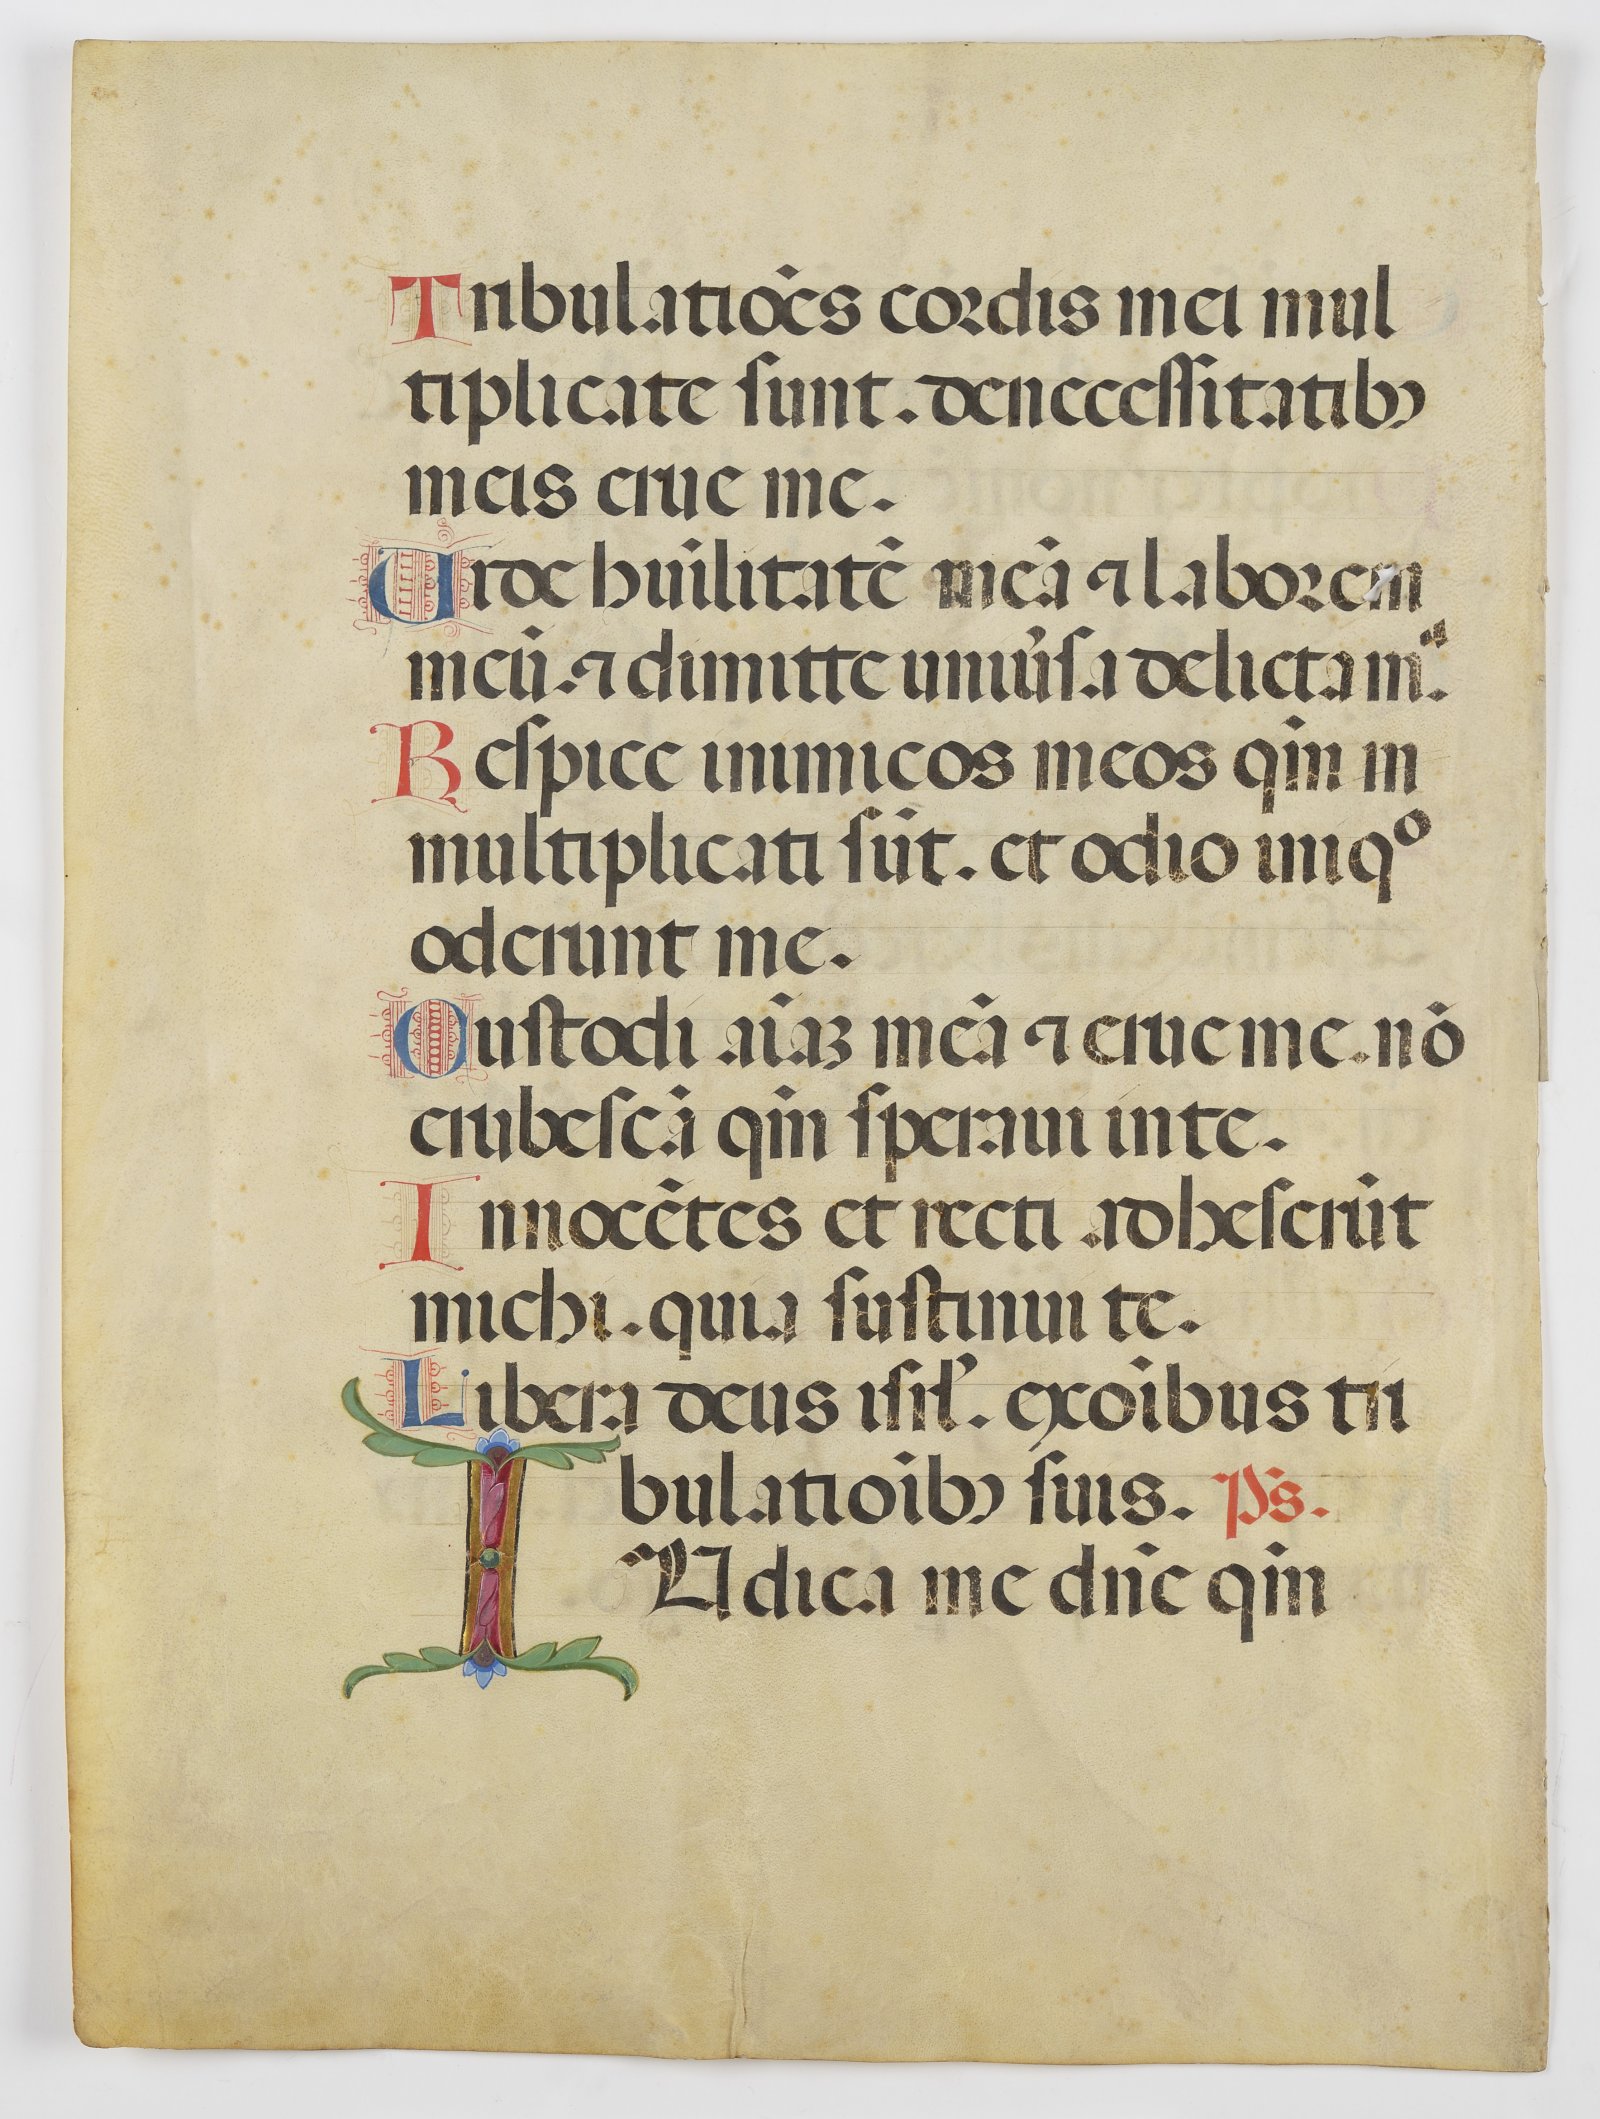 Tribulatiōēs cordis mei mul
tiplicate sunt. de neccessitatibꝯ
meis erue me.
Uide huīlitatē meā ⁊ laborem
meū. ⁊ dimitte uniu̓sa delicta mͣ.
Respice inimicos meos qm̄
multiplicati sūt. et odio iniqº
oderunt me.
Custodi aīaꝫ meā ⁊ erue me. nō
erubescā qm̄ speraui in te.
Innocētes et recti adheserūt
michi. quia sustinui te.
Libera deus isrl̓. ex oībus tri
bulatioībꝯ suis. p̄s.
IUdica me dn̄e qm̄